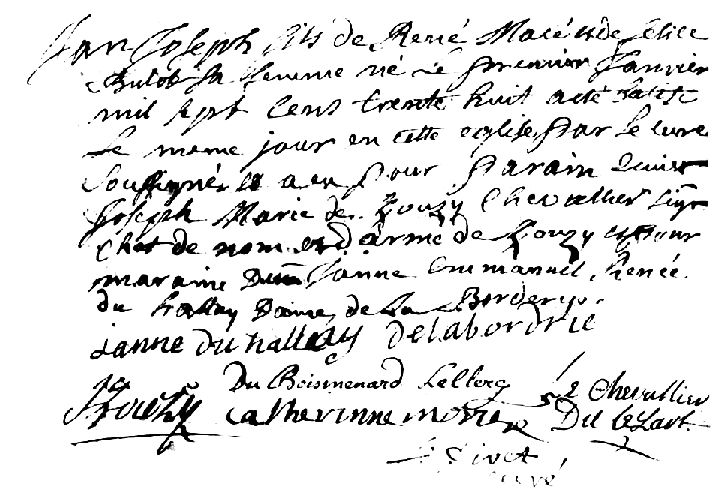 Jan Joseph fils de René Macé et de Felice
Bulot sa femme né le premier Janvier
mil sept Cens trente huit a eté batisé
le meme jour en cette eglise par le Curé
Soussigné et a eu pour parain
Joseph Marie de Houzy Chevallier Seigr
Chef de nom et d'arme de Houzy et pour
maraine Janne Emmanuel Renée
du hallay Dame de la Borderye.
Janne du hallay delabordrie
Du Boismenard Leclerc Le Chevallier
Catherinne Du Lesart
Curé